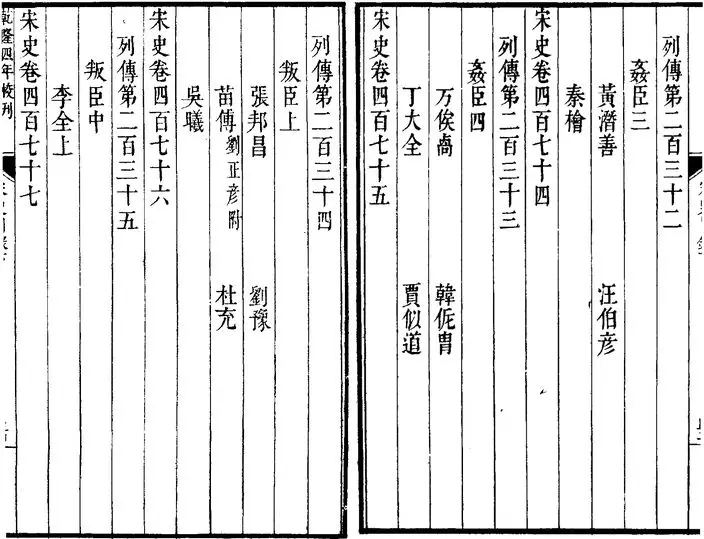 列傳第二百三十二
姦臣三
黃潛善 汪伯彥
秦檜
宋史卷四百七十四
列傳第二百三十三
姦臣四
万俟卨 韓侂冑
丁大全 賈似道
宋史卷四百七十五
列傳第二百三十四
叛臣上
張邦昌 劉豫
苗傅劉正彥附 杜充
吳曦
宋史卷四百七十六
列傳第二百三十五
叛臣中
李全上
宋史卷四百七十七
乾隆四年校刊